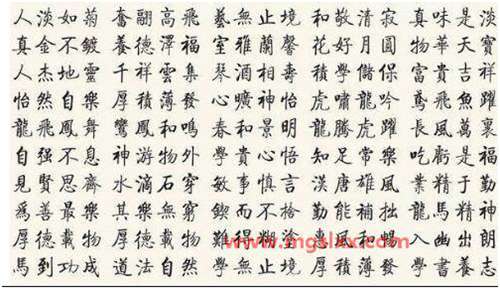 人淡如菊 奮翮高飛 藝無止境 和敬清寂 真味是淡
真金不鍍 養德澤福 室雅蘭馨 花好月圓 物華天寶
人杰地靈 千祥雲集 琴酒相壽 積學儲保 富貴吉祥
怡然自樂 厚積薄發 心曠神怡 虎嘯龍吟 鳶飛魚躍
龍飛鳳舞 鸞鳳和鳴 春和景明 龍騰虎躍 長風萬裏
自强不息 神游物外 學貴心悟 知足常樂 吃虧是福
見賢思齊 水滴石穿 敏事慎言 漢唐雄風 業精于勤
爲善最樂 其樂無窮 鍥而不捨 勤能補拙 龍馬精神
厚德載物 厚德載物 難得糊塗 惠風和暢 入幽出朗
馬到功成 道法自然 學無止境 厚積薄發 書志